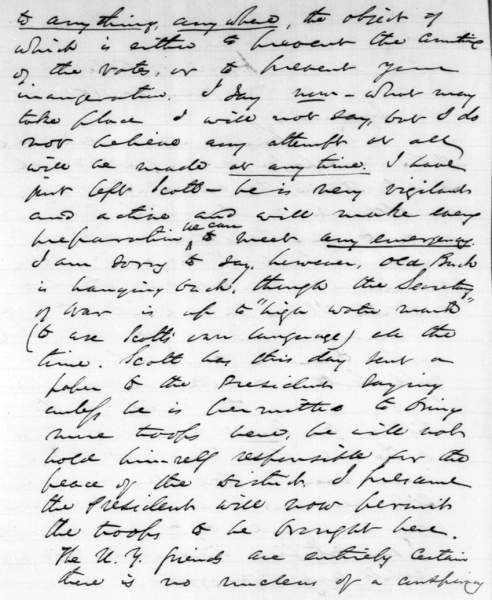 to anything, anywhere, the object of
which is either to prevent the counting
of the votes, or to prevent your
inauguration. I say now - what may
take place I will not say, but I do
not believe any attempt at all
will be made at any time. I have
just left Scott - he is very vigilant
and active and will make every
preparation he can to meet any emergency.
I am sorry to say, however, old Buck
is hanging back, though the Secretary
of War is up to "high water mark"
(to use Scott's own language) all the
time. Scott has this day sent a
paper to the President saying
unless he is permitted to bring
more troops here, he will not
hold himself responsible for the
peace of the District. I presume
the President will now permit
the troops to be brought here.
The N.Y. friends are entirely certain
there is no nucleus of a conspiracy